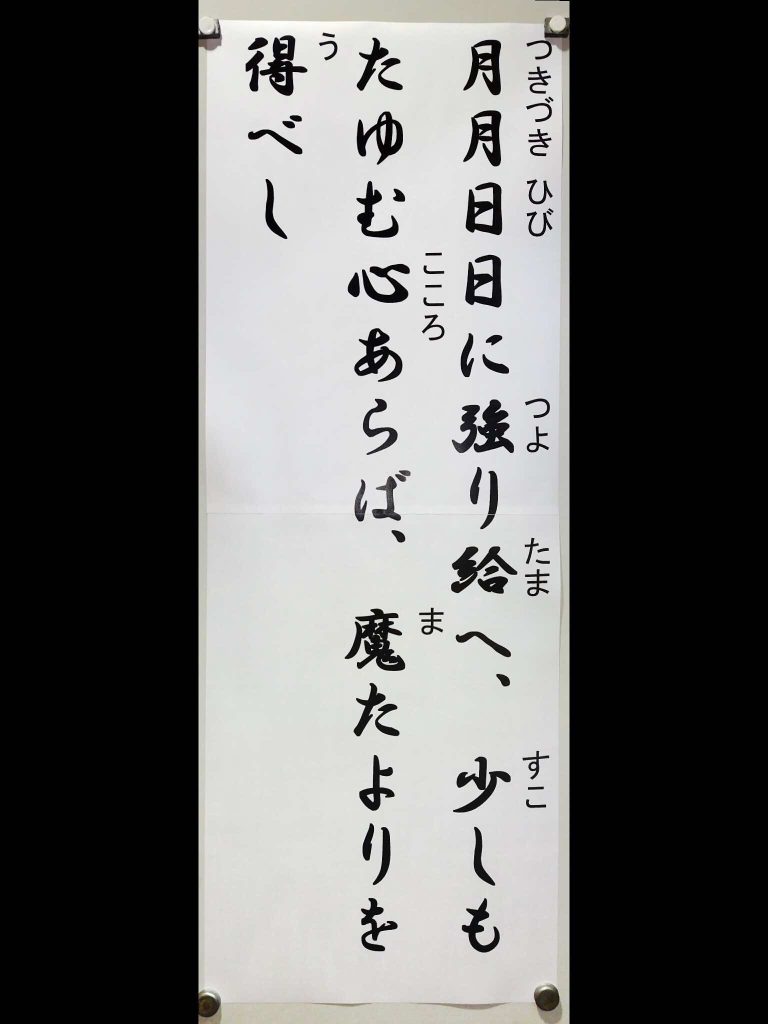 つきづき ひび つよ たま すこ
月月日日に強り給へ、少しも
こころ ま
たゆむ心あらば、魔たよりを
う
得べし